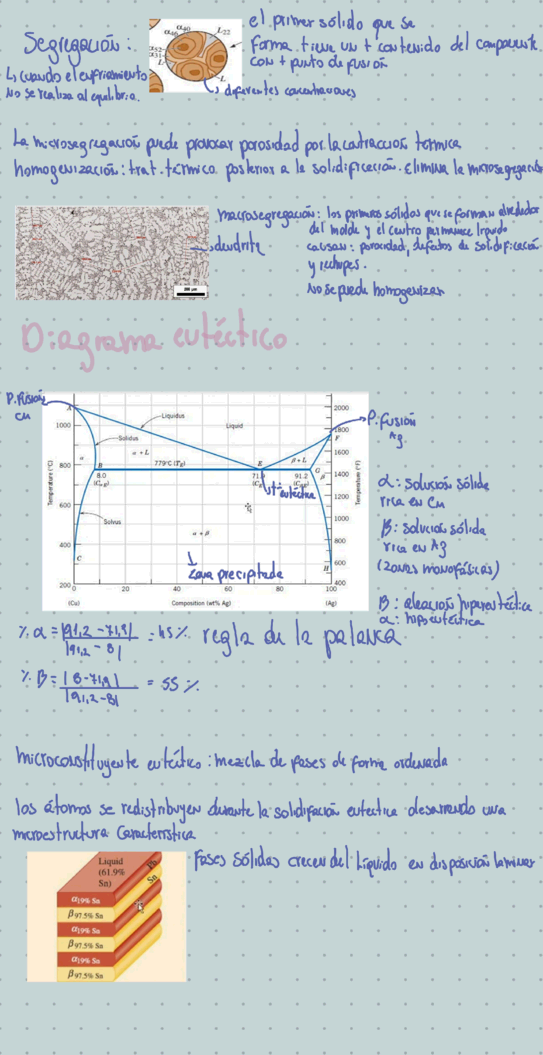 Segregación:
↳ cuando el enfriamiento
no se realiza al equilibrio.
α40
α46
L22
α52
α31
L
L
el primer sólido que se
forma tiene un + contenido del componente
con + punto de fusión
↳ diferentes concentraciones
La microsegregación puede provocar porosidad por la contracción térmica
homogenización: trat. térmico posterior a la solidificación. Elimina la microsegregación
→ dendrita
macrosegregación: los primeros sólidos que se forman alrededor
del molde y el centro permanece líquido
causan: porosidad, defectos de solidificación
y rechupes.
No se puede homogenizar
Diagrama eutéctico
P. fusión
Cu
A
1000
800
600
400
200
Temperature (°C)
Liquidus
Liquid
Solidus
α + L
α
B
779°C (TE)
E
β + L
F
G
β
8.0
(CαE)
71.9
(CE)
91.2
(CβE)
Tª eutéctica
Solvus
α + β
zona precipitada
C
H
2000
1800
1600
1400
1200
1000
800
600
400
Temperature (°F)
0
20
40
60
80
100
(Cu)
Composition (wt% Ag)
(Ag)
P. fusión
Ag
α: solución sólida
rica en Cu
β: solución sólida
rica en Ag
(zonas monofásicas)
β: aleación hipereutéctica
α: hipoeutéctica
% α = |91,2 - 71,9| / |91,2 - 8| = 45% regla de la palanca
% β = |8 - 71,9| / |91,2 - 8| = 55%
microconstituyente eutéctico: mezcla de fases de forma ordenada
los átomos se redistribuyen durante la solidifación eutectica desarrondo una
microestructura característica
Liquid
(61.9%
Sn)
Pb
Sn
α19% Sn
β97.5% Sn
α19% Sn
β97.5% Sn
α19% Sn
β97.5% Sn
Fases sólidas crecen del líquido en disposición laminar